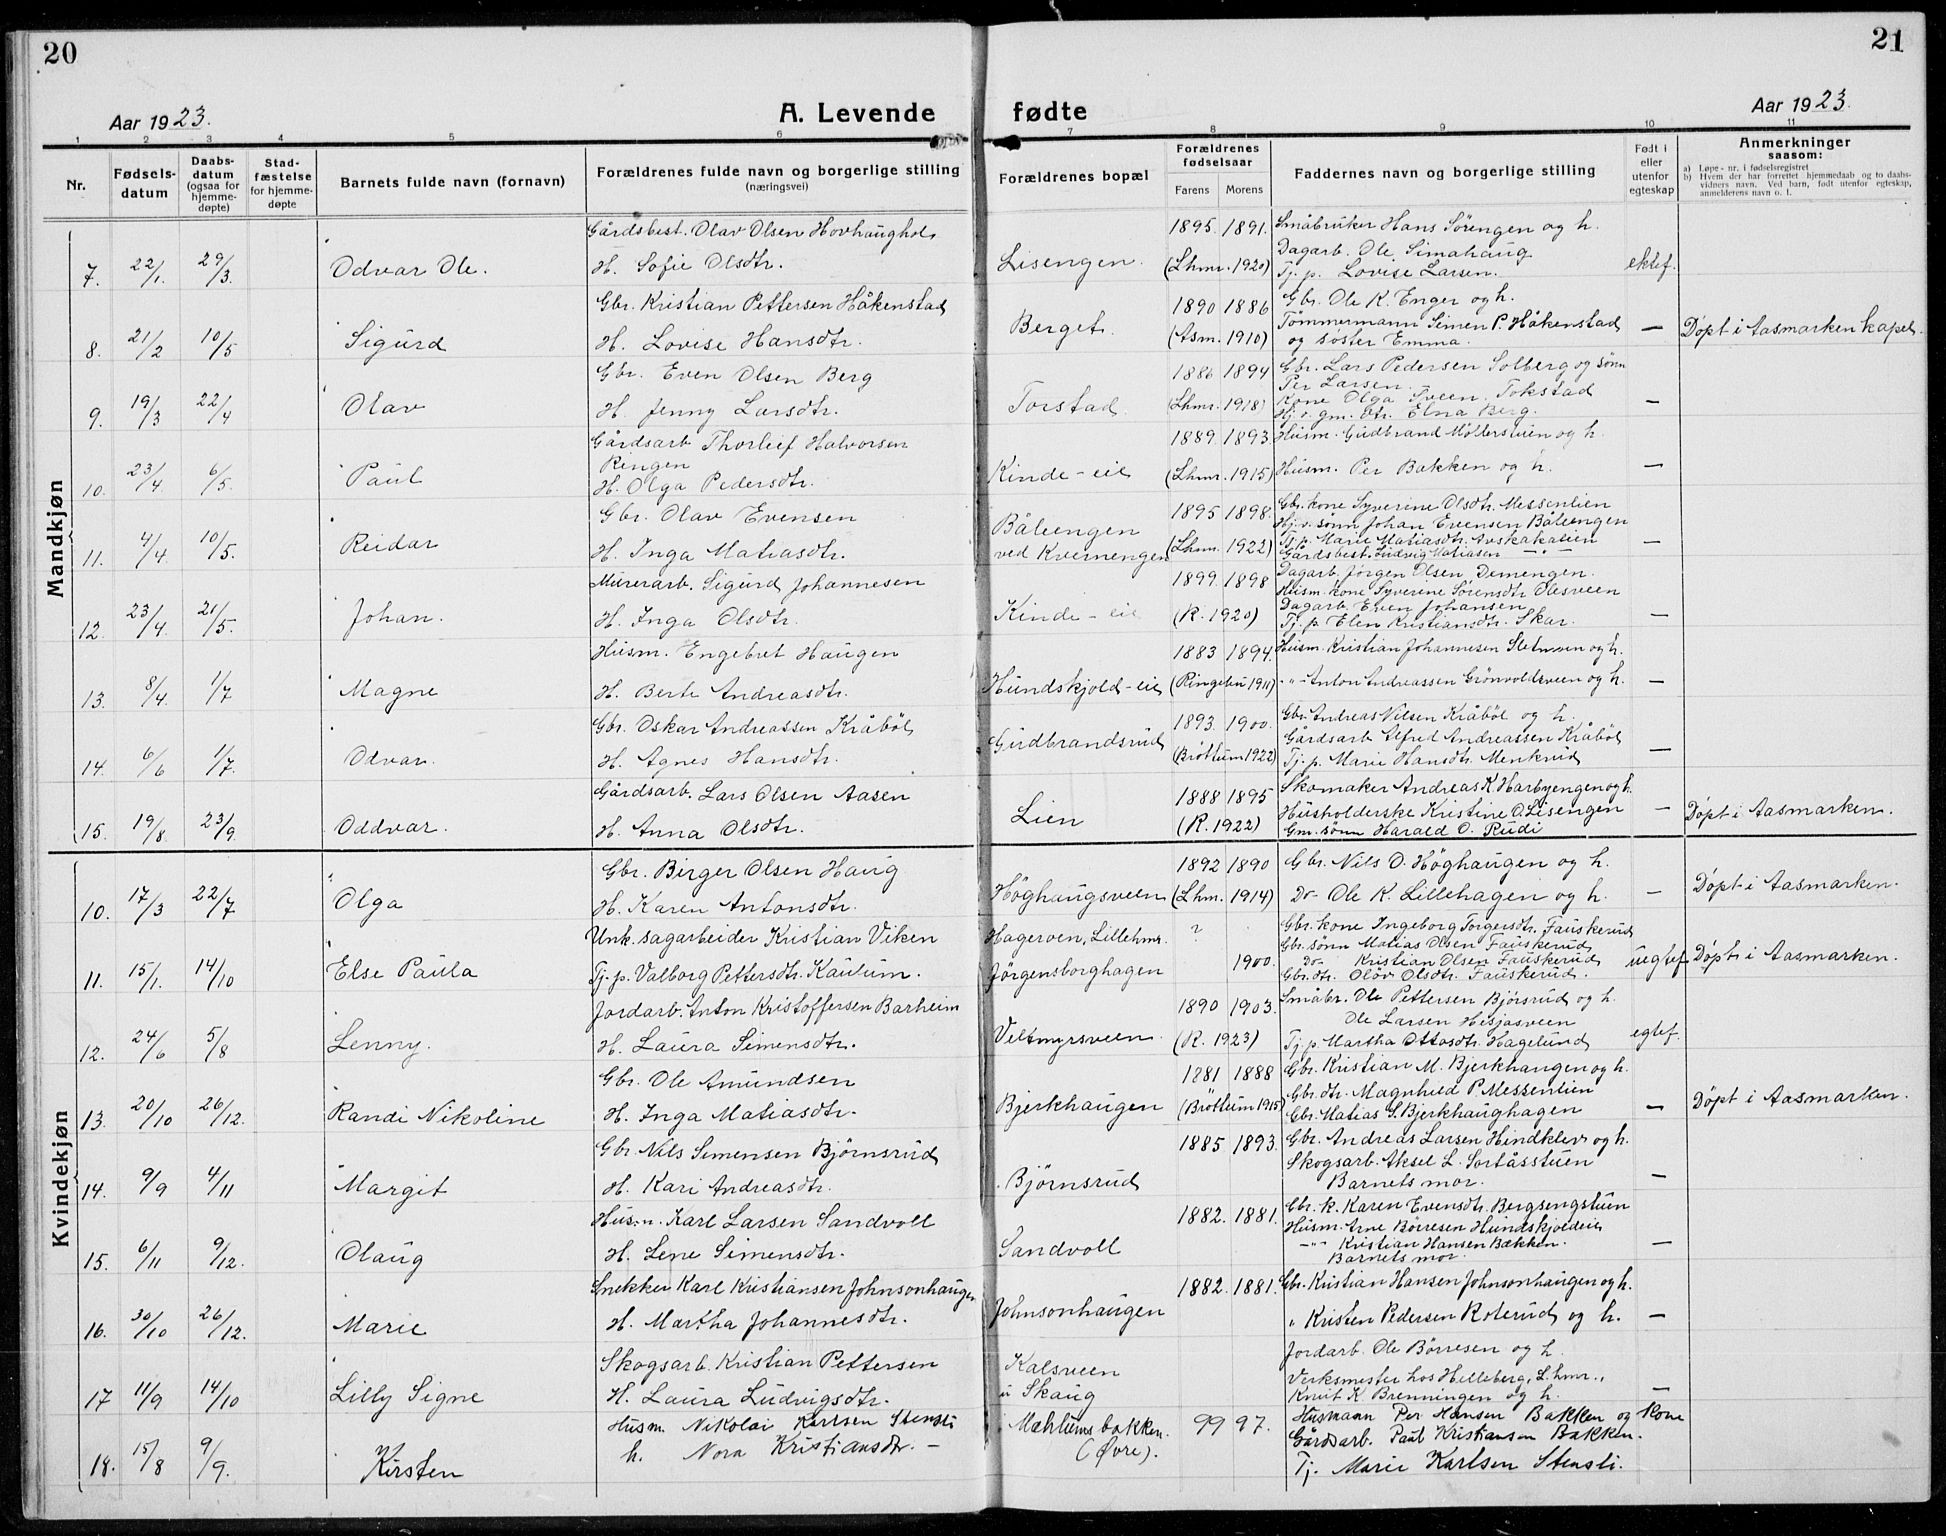 20
21
Aar 1923.
A. Levende fødte
Aar 1923.
1 2 3 4 5 6 7 8 9 10 11
Nr.
Fødsels-datum
Daabs-datum (ogsaa for hjemme-døpte)
Stad-fæstelse for hjemme-døpte
Barnets fulde navn (fornavn)
Forældrenes fulde navn og borgerlige stilling (næringsvei)
Forældrenes bopæl
Forældrenes fødselsaar
Farens Morens
Faddernes navn og borgerlige stilling
Født i eller utenfor egteskap
Anmerkninger saasom:
a) Løpe-nr. i fødselsregistret
b) Hvem der har forrettet hjemmedaab og to daabs-vidners navn. Ved barn, født utenfor egteskap, anmelderens navn o. l.
Mandkjøn
7. 22/1. 29/3. Odvar Ole.
Gårdsbest. Olav Olsen Hovhaughol
H. Sofie Olsdtr.
Lisengen.
1895. 1891.
(Lhmr. 1920)
Småbruker Hans Sörengen og h.
Dagarb. Ole Simahaug
Tj. p. Lovise Larsen.
ektef.
8. 21/2 10/5 Sigurd
Gbr. Kristian Pettersen Håkenstad
H. Lovise Hansdtr.
Berget.
1890 1886
(Asm. 1910)
Gbr. Ole K. Enger og h.
Tömmermann Simen P. Håkenstad
og söster Emma.
—
Döpt i Aasmarken kapel.
9. 19/3 22/4 Olav
Gbr. Even Olsen Berg
H. Jenny Larsdtr.
Torstad.
1886 1894
(Lhmr. 1918)
Gbr. Lars Pedersen Solberg og sönn
Per Larsen.
Kone Olga Sveen, Tokstad
Hj. v. gm. dtr. Elna Berg.
—
10. 23/4. 6/5. Paul
Gårdsarb. Thorleif Halvorsen
Ringen
H. Olga Pedersdtr.
Kinde-eie
1889. 1893.
(Lhmr. 1915)
Husm. Gudbrand Möllerstuen og h.
Husm. Per Bakken og h.
—
11. 4/4 10/5. Reidar
Gbr. Olav Evensen
H. Inga Matiasdtr.
Båleengen
ved Kvernengen
1895 1898.
(Lhmr. 1922)
Gbr. kone Syverine Olsdtr. Messenlien
Hj. v. sönn Johan Evensen Båleengen
Tj. p. Marie Matiasdtr. Avskakalien
Gårdsbest. Ludvig Matiasen — " —
—
12. 23/4. 21/5. Johan.
Murerarb. Sigurd Johannesen
H. Inga Olsdtr.
Kinde-eie
1899. 1898
(R. 1920)
Dagarb. Jörgen Olsen, Demengen.
Husm. kone Syverine Sörensdtr. Olesveen
Dagarb. Even Johansen
Tj. p. Elen Kristiansdtr. Skar.
—
13. 8/4. 1/7 Magne
Husm. Engebret Haugen
H. Berte Andreasdtr.
Hundskjold-eie
1883 1894.
(Ringebu 1911)
Husm. Kristian Johannesen Sletveen og h.
- " - Anton Andreassen Grönvoldsveen og h.
—
14. 6/6 1/7. Odvar.
Gbr. Oskar Andreassen Kråböl
H. Agnes Hansdtr.
Gudbrandsrud
1893. 1900.
(Bröttum 1922)
Gbr. Andreas Nilsen Kråböl og h.
Gårdsarb. Alfred Andreassen Kråböl
Tj. p. Marie Hansdtr. Menkrud
—
15. 19/8 23/9. Oddvar.
Gårdsarb. Lars Olsen Aasen
H. Anna Olsdtr.
Lien
1888 1895
(R. 1922)
Skomaker Andreas K. Harbyengen og h.
Husholderske Kristine O. Lisengen
Gm. sönn Harald O. Rudi
—
Döpt i Aasmarken.
Kvindekjøn
10. 17/3 22/7 Olga
Gbr. Birger Olsen Haug
H. Karen Antonsdtr.
Höghaugsveen
1892 1890
(Lhm. 1914)
Gbr. Nils O. Höghaugen og h.
Do- Ole K. Lillehagen og h.
—
Döpt i Aasmarken.
11. 15/1. 14/10 Else Paula
Unk. sagarbeider Kristian Viken
Tj. p. Valborg Pettersdtr. Kaulum.
Hagerven, Lillehmr.
Jörgensborghagen
?
1900.
Gbr. kone Ingeborg Torgersdtr. Fauskerud
Gbr. sönn Matias Olsen Fauskerud
Do- Kristian Olsen Fauskerud
Gbr. dtr. Olöv Olsdtr. Fauskerud.
uegtef.
Döpt i Aasmarken.
12. 24/6 5/8 Lenny.
Jordarb. Anton Kristoffersen Barheim
H. Laura Simensdtr.
Veltmyrsveen.
1890 1903.
(R. 1923)
Småbr. Ole Pettersen Björsrud og h.
Ole Larsen Hesjasveen
Tj. p. Martha Ottosdtr. Hagelund
egtef.
13. 20/10 26/12. Randi Nikoline
Gbr. Ole Amundsen
H. Inga Matiasdtr.
Bjerkhaugen
1881 1888
(Bröttum 1915)
Gbr. Kristian M. Bjerkhaugen og h.
Gbr. dtr. Magnhild P. Messenlien
Gbr. Matias S. Bjerkhaughagen
—
Döpt i Aasmarken.
14. 9/9 4/11 Margit
Gbr. Nils Simensen Bjørnsrud
H. Kari Andreasdtr.
Bjørnsrud
1885 1893.
Gbr. Andreas Larsen Hindklev og h.
Skogsarb. Aksel L. Sortåsstuen
Barnets mor.
—
15. 6/11 9/12. Olaug
Husm. Karl Larsen Sandvoll
H. Lene Simensdtr.
Sandvoll
1882. 1881.
Gbr. k. Karen Evensdtr. Bergsengstuen
Husm. Arne Börresen Hundskjoldeie
- " - Kristian Hansen Bækken.
Barnets mor.
—
16. 30/10 26/12. Marie
Snekker Karl Kristiansen Johnsonhaugen
H. Martha Johannesdtr.
Johnsonhaugen
1882. 1881.
Gbr. Kristian Hansen Johnsonhaugen og h.
" Kristen Pedersen Roterud og h.
—
17 11/9 14/10 Lilly Signe
Skogsarb. Kristian Pettersen
H. Laura Ludvigsdtr.
Kalsveen
u Skaug
Jordarb. Ole Börresen og h.
Verksmester hos Helleberg, L.hmr.,
Knut K. Brenningen og h.
—
18. 15/8 9/9. Kirsten
Husm. Nikolai Karlsen Stensli
h. Nora Kristiansdtr. —
Mæhlums bakken.
(Øvre).
99 97.
Husmann Per Hansen Bakken og kone
Gårdsarb. Paul Kristiansen Bakken.
Tj. Marie Karlsen Stensli.